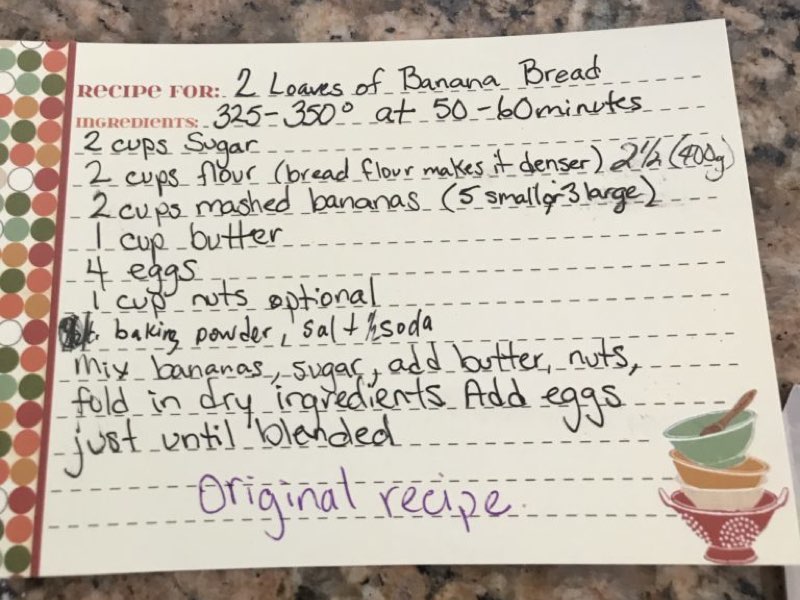 RECIPE FOR: 2 Loaves of Banana Bread
INGREDIENTS: 325-350° at 50-60minutes
2 cups Sugar
2 cups flour (bread flour makes it denser) 2 1/2 (400g)
2 cups mashed bananas (5 small or 3 large)
1 cup butter
4 eggs
1 cup nuts optional
baking powder, salt 1/2 soda
mix bananas, sugar, add butter, nuts,
fold in dry ingredients Add eggs
just until blended
Original recipe.